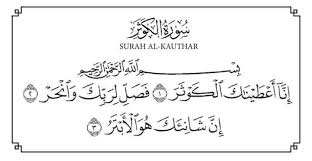 سُورَةُ الْكَوْثَرِ
SURAH AL-KAUTHAR
بِسْمِ اللَّهِ الرَّحْمَٰنِ الرَّحِيمِ
إِنَّا أَعْطَيْنَاكَ الْكَوْثَرَ ١ فَصَلِّ لِرَبِّكَ وَانْحَرْ ٢
إِنَّ شَانِئَكَ هُوَ الْأَبْتَرُ ٣